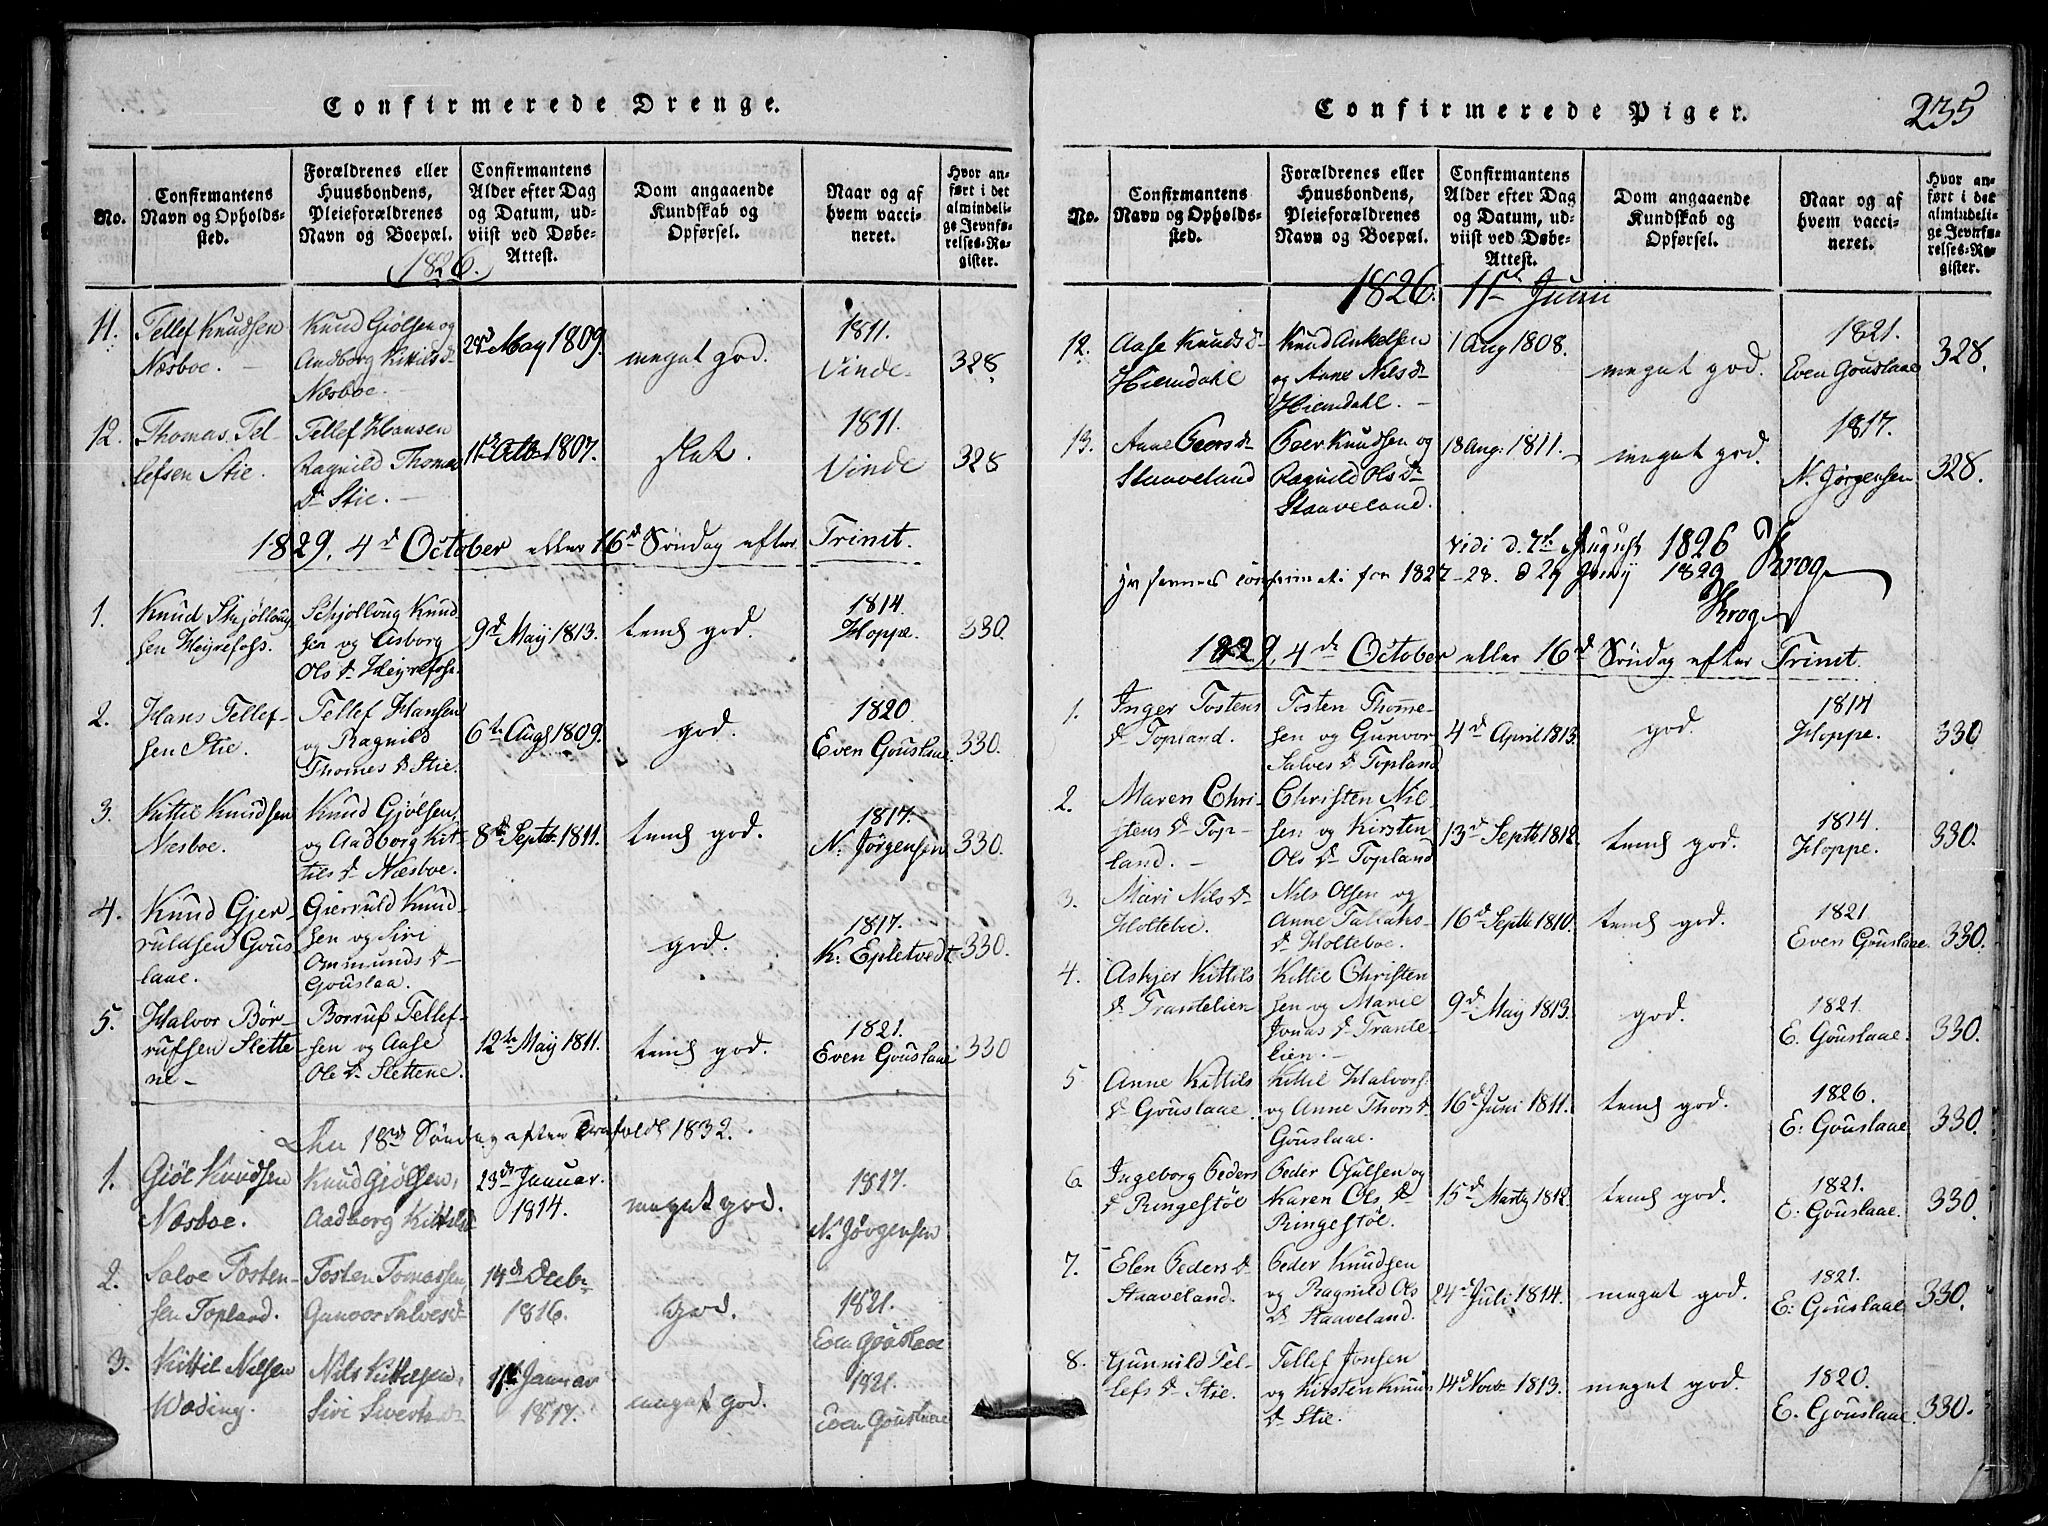 Confirmerede Drenge.
No.
Confirmantens
Navn og Opholds-
sted.
Forældrenes eller
Huusbondens,
Pleieforældrenes
Navn og Boepæl.
Confirmantens
Alder efter Dag
og Datum, ud-
viist ved Døbe-
Attest.
Dom angaaende
Kundskab og
Opførsel.
Naar og af
hvem vacci-
neret.
Hvor an-
ført i det
almindeli-
ge Jevnfø-
relses-Re-
gister.
1826.
11.
Tellef Knudsen
Næsboe.
Knud Giölsen og
Aadborg Kittils D
Næsboe.
May 1809.
meget god.
1811.
Vinde
328
12.
Thomas Tel-
lefsen Stie.
Tellef Hansen
Ragnild Thomæ
D Stie.
1807.
slet.
1811.
Vinde
328
1829, 4d October eller 16d Søndag efter Trinit.
1.
Knud Skjölloug
sen Heyrefoss.
Schjölloug Knud
sen og Aasborg
Ols D Heyrefoss.
9d Maij 1813.
temd god.
1814.
Hoppe.
330.
2.
Hans Tellef-
sen Stie.
Tellef Hansen
og Ragnild
Thomes D Stie.
6te Augs 1809.
god.
1820.
Even Gouslaae.
330.
3.
Kittil Knudsen
Næsboe.
Knud Gjölsen,
og Aadborg Kit-
tils D Næsboe.
8d Septb. 1811.
temd god.
1817.
N. Jørgensen
330.
4.
Knud Gjer-
ruldsen Gous
laae.
Gierruld Knud-
sen og Siri
Ommunds D
Gouslaa.
god.
1817.
K. Epletvedt
330.
5.
Halvor Bør-
rufsen Slette
ne
Borruf Tellef-
sen og Aase
Ole D Slettene.
12te Maij 1811.
temd god.
1821.
Even Gouslaae
330
18d Søndag efter 1832.
1.
Giöl Knudsen
Næsboe.
Knud Giölsen,
Aadborg Kittilsd
23d Januar.
1814.
meget god.
1817.
N. Jörgensen
2.
Salve Tosten-
sen Topland.
Tosten Tomassen,
Gunvor Salvesd
14d Decbr
1816.
god.
1821.
Even Gouslaae
3.
Kittil Nilsen
Wæding.
Nils Kittelsen,
Siri Siverts D
Januar
1817.
meget god.
1821.
Even Gouslaae
Confirmerede Piger.
235
No.
Confirmantens
Navn og Opholds-
sted.
Forældrenes eller
Huusbondens,
Pleieforældrenes
Navn og Boepæl.
Confirmantens
Alder efter Dag
og Datum, ud-
viist ved Døbe-
Attest.
Dom angaaende
Kundskab og
Opførsel.
Naar og af
hvem vacci-
neret.
Hvor an-
ført i det
almindeli-
ge Jevnfø-
relses-Re-
gister.
1826. 11d Junii
12.
Aase Knuds D
Hiemdahl
Knud Ankelsen
og Anne Nils D
Hiemdahl.
1 Aug 1808.
meget god.
1821.
Even Gouslaae
328.
13.
Anne Peers D
Staaveland
Peer Knudsen og
Ragnild Ols D
Staaveland.
18 Aug: 1811.
meget god.
1817.
N. Jørgensen
328.
Vidi d. 7d August 1826 Krog
confirmati fra 1827-28. d 29 1829
Krog
1829, 4de October eller 16d Søndag efter Trinit.
1.
Inger Tostens
D Topland.
Tosten Thome-
sen og Gunvor
Salves D Topland
4d April 1813.
god.
1814
Hoppe.
330
2.
Maren Chri-
stens D Top-
land.
Christen Nil-
sen og Kirsten
Ols D Topland
13d Septb 1812
temd god.
1814.
Hoppe.
330.
3.
Mari Nils D
Holtebe.
Nils Olsen og
Anne
D Holteboe.
16d Septb 1810.
temd god.
1821
Even Gouslaae.
330.
4.
Asbjer Kittils
D Trantelien
Kittil Christen
sen og Marie
Jonas D Trante-
lien.
9d May 1813.
god.
1821.
E. Gouslaae.
330.
5
Anne Kittils
D Gouslaae.
Kittil Halvors.
og Anne Thors D
Gouslaae.
16d Juni 1811.
temd god.
1826.
E: Gouslaae
330.
6.
Ingeborg Peders
D Ringestöl
Peder Osulsen og
Karen Ols D
Ringestöl.
15d Martz 1812.
temd god.
1821.
E: Gouslaae.
330.
7.
Elen Peders D
Staaveland.
Peder Knudsen
og Ragnild Ols
D Staaveland.
24d Juli 1814.
meget god.
1821.
E: Gouslaae
330.
8.
Gunnild Tel-
lefs D Stie.
Tellef Jonsen
og Kirsten Knuds
D Stie.
14d Novr 1813.
meget god.
1820.
E. Gouslaae.
330.